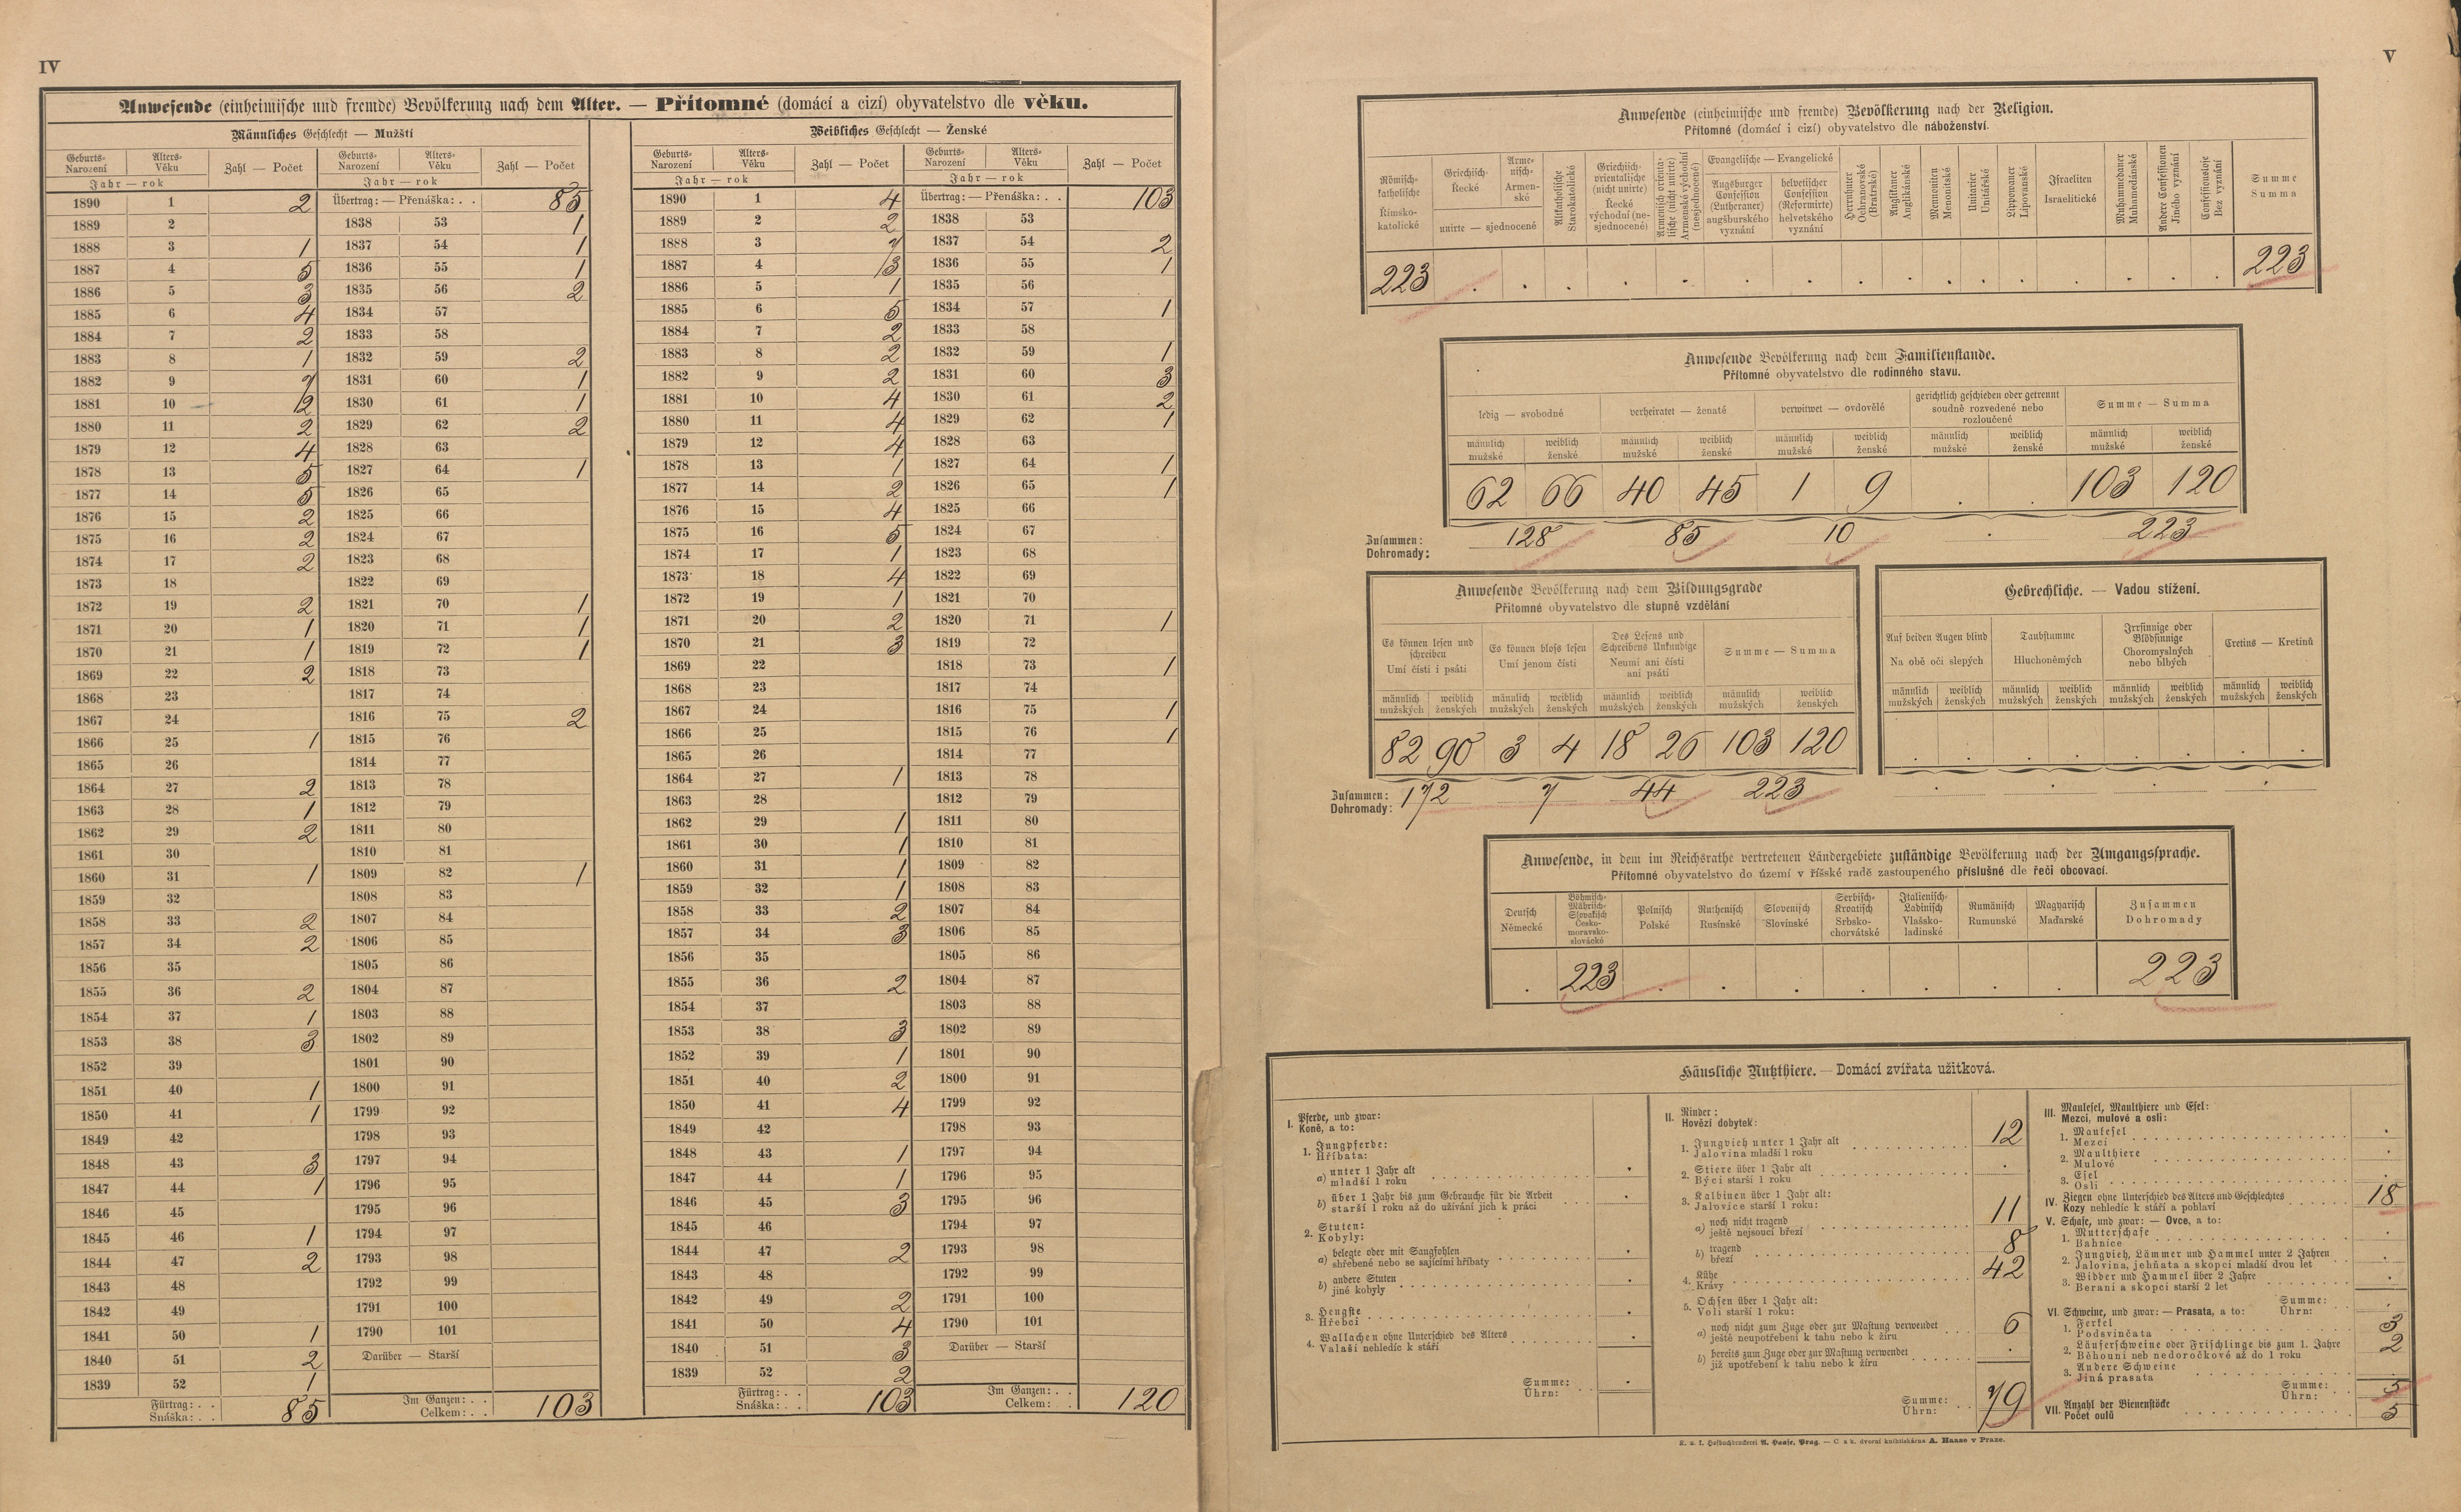 IV
Anwesende (einheimische und fremde) Bevölkerung nach dem Alter. — Přítomné (domácí a cizí) obyvatelstvo dle věku.
Männliches Geschlecht — Mužští
Geburts- Narození Alters- Věku Zahl — Počet Geburts- Narození Alters- Věku Zahl — Počet
Jahr — rok Jahr — rok
1890 1 2 Übertrag: — Přenáška: . . 85
1889 2 1838 53 1
1888 3 1 1837 54 1
1887 4 5 1836 55 1
1886 5 3 1835 56 2
1885 6 4 1834 57
1884 7 2 1833 58
1883 8 1 1832 59 2
1882 9 7 1831 60 1
1881 10 12 1830 61 1
1880 11 2 1829 62 2
1879 12 4 1828 63
1878 13 5 1827 64 1
1877 14 5 1826 65
1876 15 2 1825 66
1875 16 2 1824 67
1874 17 2 1823 68
1873 18 1822 69
1872 19 2 1821 70 1
1871 20 1 1820 71 1
1870 21 1 1819 72 1
1869 22 2 1818 73
1868 23 1817 74
1867 24 1816 75 2
1866 25 1 1815 76
1865 26 1814 77
1864 27 2 1813 78
1863 28 1 1812 79
1862 29 2 1811 80
1861 30 1810 81
1860 31 1 1809 82 1
1859 32 1808 83
1858 33 2 1807 84
1857 34 2 1806 85
1856 35 1805 86
1855 36 2 1804 87
1854 37 1 1803 88
1853 38 3 1802 89
1852 39 1801 90
1851 40 1 1800 91
1850 41 1 1799 92
1849 42 1798 93
1848 43 3 1797 94
1847 44 1 1796 95
1846 45 1795 96
1845 46 1 1794 97
1844 47 2 1793 98
1843 48 1792 99
1842 49 1791 100
1841 50 1 1790 101
1840 51 2 Darüber — Starší
1839 52 1
Fürtrag: . . Snáška: . . 85 Im Ganzen: . . Celkem: . . 103
Weibliches Geschlecht — Ženské
Geburts- Narození Alters- Věku Zahl — Počet Geburts- Narození Alters- Věku Zahl — Počet
Jahr — rok Jahr — rok
1890 1 4 Übertrag: — Přenáška: . . 103
1889 2 2 1838 53
1888 3 7 1837 54 2
1887 4 13 1836 55 1
1886 5 1 1835 56
1885 6 5 1834 57 1
1884 7 2 1833 58
1883 8 2 1832 59 1
1882 9 2 1831 60 3
1881 10 4 1830 61 2
1880 11 4 1829 62 1
1879 12 4 1828 63
1878 13 1 1827 64 1
1877 14 2 1826 65 1
1876 15 4 1825 66
1875 16 5 1824 67
1874 17 1 1823 68
1873 18 4 1822 69
1872 19 1 1821 70
1871 20 2 1820 71 1
1870 21 3 1819 72
1869 22 1818 73 1
1868 23 1817 74
1867 24 1816 75 1
1866 25 1815 76 1
1865 26 1814 77
1864 27 1 1813 78
1863 28 1812 79
1862 29 1 1811 80
1861 30 1 1810 81
1860 31 1 1809 82
1859 32 1 1808 83
1858 33 2 1807 84
1857 34 3 1806 85
1856 35 1805 86
1855 36 2 1804 87
1854 37 1803 88
1853 38 3 1802 89
1852 39 1 1801 90
1851 40 2 1800 91
1850 41 4 1799 92
1849 42 1798 93
1848 43 1 1797 94
1847 44 1 1796 95
1846 45 3 1795 96
1845 46 1794 97
1844 47 2 1793 98
1843 48 1792 99
1842 49 2 1791 100
1841 50 4 1790 101
1840 51 3 Darüber — Starší
1839 52 2
Fürtrag: . . Snáška: . . 103 Im Ganzen: . . Celkem: . . 120
V
Anwesende (einheimische und fremde) Bevölkerung nach der Religion.
Přítomné (domácí i cizí) obyvatelstvo dle náboženství.
Römisch-katholische Římsko-katolické
Griechisch- Řecké
Armenisch- Armenské
unirte — sjednocené
Altkatholische Starokatolické
Griechisch-orientalische (nicht unirte) Řecké východní (nesjednocené)
Armenisch orientalische (nicht unirte) Armenské východní (nesjednocené)
Evangelische — Evangelické
Augsburger Confession (Lutheraner) augšburského vyznání
helvetischer Confession (Reformirte) helvetského vyznání
Herrnhuter Ochranovské (Bratrské)
Anglikaner Anglikánské
Mennoniten Menonitské
Unitarier Unitářské
Lippowaner Lipovanské
Israeliten Israelitické
Muhammedaner Muhamedánské
Andere Confessionen Jiného vyznání
Confessionslose Bez vyznání
Summe Summa
223 . . . . . . . . . . . . . . . . 223
Anwesende Bevölkerung nach dem Familienstande.
Přítomné obyvatelstvo dle rodinného stavu.
ledig — svobodné verheiratet — ženaté verwitwet — ovdovělé gerichtlich geschieden oder getrennt soudně rozvedené nebo rozloučené Summe — Summa
männlich mužské weiblich ženské männlich mužské weiblich ženské männlich mužské weiblich ženské männlich mužské weiblich ženské männlich mužské weiblich ženské
62 66 40 45 1 9 . . 103 120
Zusammen: Dohromady: 128 85 10 . 223
Anwesende Bevölkerung nach dem Bildungsgrade
Přítomné obyvatelstvo dle stupně vzdělání
Es können lesen und schreiben Umí čísti i psáti
Es können bloss lesen Umí jenom čísti
Des Lesens und Schreibens Unkundige Neumí ani čísti ani psáti
Summe — Summa
männlich mužských weiblich ženských männlich mužských weiblich ženských männlich mužských weiblich ženských männlich mužských weiblich ženských
82 90 3 4 18 26 103 120
Zusammen: Dohromady: 172 7 44 223
Gebrechliche. — Vadou stížení.
Auf beiden Augen blind Na obě oči slepých
Taubstumme Hluchoněmých
Irrsinnige oder Blödsinnige Choromyslných nebo blbých
Cretins — Kretinů
männlich mužských weiblich ženských männlich mužských weiblich ženských männlich mužských weiblich ženských männlich mužských weiblich ženských
. . . . . . . .
. . . .
Anwesende, in dem im Reichsrathe vertretenen Ländergebiete zuständige Bevölkerung nach der Umgangssprache.
Přítomné obyvatelstvo do území v říšské radě zastoupeného příslušné dle řeči obcovací.
Deutsch Německé
Böhmisch-Mährisch-Slovakisch Česko-moravsko-slovácké
Polnisch Polské
Ruthenisch Rusínské
Slovenisch Slovinské
Serbisch-Kroatisch Srbsko-chorvátské
Italienisch-Ladinisch Vlašsko-ladinské
Rumänisch Rumunské
Magyarisch Maďarské
Zusammen Dohromady
. 223 . . . . . . . 223
Häusliche Nutzthiere. — Domácí zvířata užitková.
I. Pferde, und zwar:
Koně, a to:
1. Jungpferde:
Hříbata:
a) unter 1 Jahr alt
mladší 1 roku .
b) über 1 Jahr bis zum Gebrauche für die Arbeit
starší 1 roku až do užívání jich k práci .
2. Stuten:
Kobyly:
a) belegte oder mit Saugfohlen
shřebené nebo se sajícími hříbaty .
b) andere Stuten
jiné kobyly .
3. Hengste
Hřebci .
4. Wallachen ohne Unterschied des Alters
Valaši nehledíc k stáří .
Summe:
Úhrn: .
II. Rinder:
Hovězí dobytek:
1. Jungvieh unter 1 Jahr alt
Jalovina mladší 1 roku 12
2. Stiere über 1 Jahr alt
Býci starší 1 roku .
3. Kalbinen über 1 Jahr alt:
Jalovice starší 1 roku:
a) noch nicht tragend
ještě nejsoucí březí 11
b) tragend
březí 8
4. Kühe
Krávy 42
5. Ochsen über 1 Jahr alt:
Voli starší 1 roku:
a) noch nicht zum Zuge oder zur Mastung verwendet
ještě neupotřebení k tahu nebo k žíru 6
b) bereits zum Zuge oder zur Mastung verwendet
již upotřebení k tahu nebo k žíru .
Summe:
Úhrn: 79
III. Maulesel, Maulthiere und Esel:
Mezci, mulové a osli:
1. Maulesel
Mezci .
2. Maulthiere
Mulové .
3. Esel
Osli .
IV. Ziegen ohne Unterschied des Alters und Geschlechtes
Kozy nehledíc k stáří a pohlaví 18
V. Schafe, und zwar: — Ovce, a to:
1. Mutterschafe
Bahnice .
2. Jungvieh, Lämmer und Hammel unter 2 Jahren
Jalovina, jehňata a skopci mladší dvou let .
3. Widder und Hammel über 2 Jahre
Berani a skopci starší 2 let .
Summe:
Úhrn: .
VI. Schweine, und zwar: — Prasata, a to:
1. Ferkel
Podsvinčata 3
2. Läuferschweine oder Frischlinge bis zum 1. Jahre
Běhouni neb nedoročkové až do 1 roku 2
3. Andere Schweine
Jiná prasata .
Summe:
Úhrn: 5
VII. Anzahl der Bienenstöcke
Počet oulů 5
K. u. k. Hofbuchdruckerei A. Haase, Prag. — C. a k. dvorní knihtiskárna A. Haase v Praze.